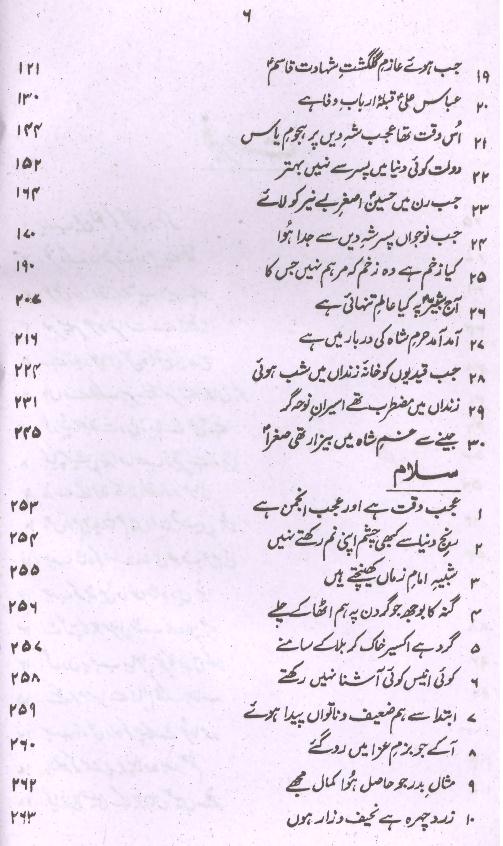 ۶
۱۹ جب ہوئے عازمِ گلگشتِ شہادت قاسمؑ ۱۲۱
۲۰ عباس علیؑ قبلۂ ارباب وفا ہے ۱۳۰
۲۱ اُس وقت تھا عجب شہِ دیں پر ہجومِ یاس ۱۴۴
۲۲ دولت کوئی دنیا میں پسر سے نہیں بہتر ۱۵۲
۲۳ جب رن میں حسینؑ اصغرِ بے شیر کو لائے ۱۶۴
۲۴ جب نوجواں پسر شہِ دیں سے جدا ہُوا ۱۷۰
۲۵ کیا زخم ہے وہ زخم کہ مرہم نہیں جس کا ۱۹۰
۲۶ آج شبیرؑ پہ کیا عالمِ تنہائی ہے ۲۰۶
۲۷ آمد آمد حرمِ شاہ کی دربار میں ہے ۲۱۶
۲۸ جب قیدیوں کو خانۂ زنداں میں شب ہوئی ۲۲۴
۲۹ زنداں میں مضطرب تھے اسیرانِ نوحہ گر ۲۳۱
۳۰ جینے سے غمِ شاہ میں بیزار تھی صغراؑ ۲۴۵
سلام
۱ عجب وقت ہے اور عجب انجمن ہے ۲۵۳
۲ رنجِ دنیا سے کبھی چشم اپنی نم رکھتے نہیں ۲۵۴
۳ شبیہِ امامِ زماں کھینچتے ہیں ۲۵۵
۴ گنہ کا بوجھ جو گردن پہ ہم اٹھا کے چلے ۲۵۶
۵ گرد ہے اکسیر خاکِ کربلا کے سامنے ۲۵۷
۶ کوئی انیس کوئی آشنا نہیں رکھتے ۲۵۸
۷ ابتدا سے ہم ضعیف و ناتواں پیدا ہوئے ۲۵۹
۸ آکے جو بزمِ عزا میں رو گئے ۲۶۰
۹ مثالِ بدر جو حاصل ہُوا کمال مجھے ۲۶۲
۱۰ زرد چہرہ ہے نحیف و زار ہوں ۲۶۳